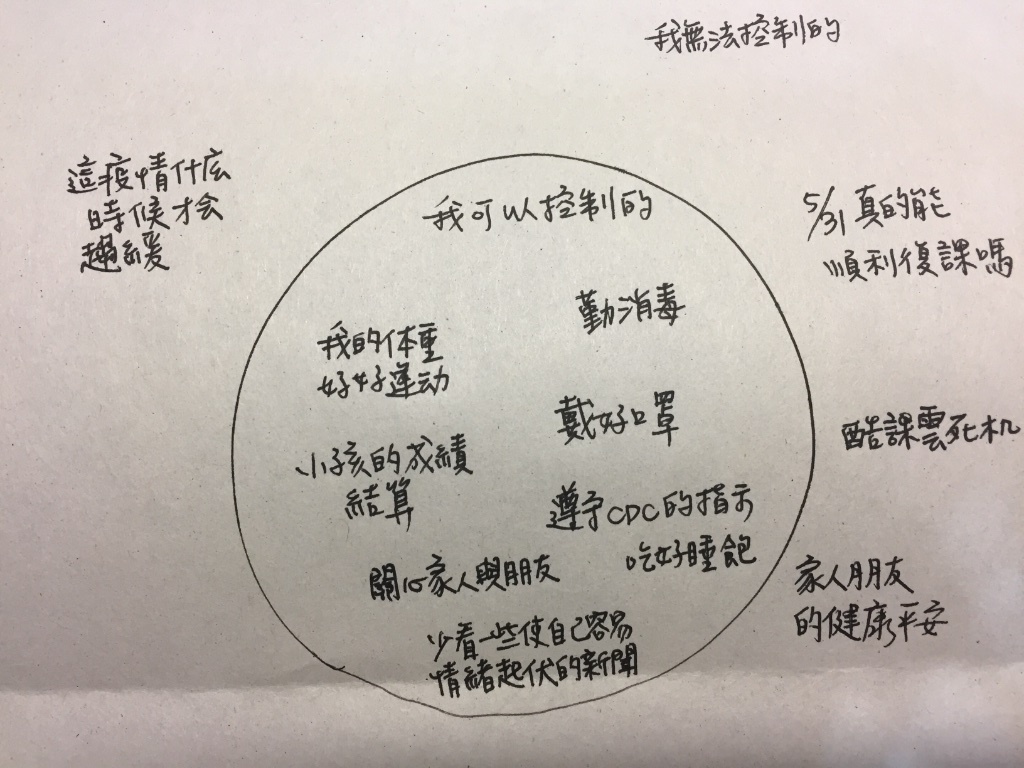 我無法控制的
這疫情什庅
時候才会
趨緩
5/31 真的能
順利復課嗎
酷課雲死机
家人朋友
的健康平安
我可以控制的
勤消毒
我的体重
好好運动
戴好口罩
小孩的成績
結算
遵守CDC的指示
吃好睡飽
關心家人與朋友
少看一些使自己容易
情緒起伏的新聞